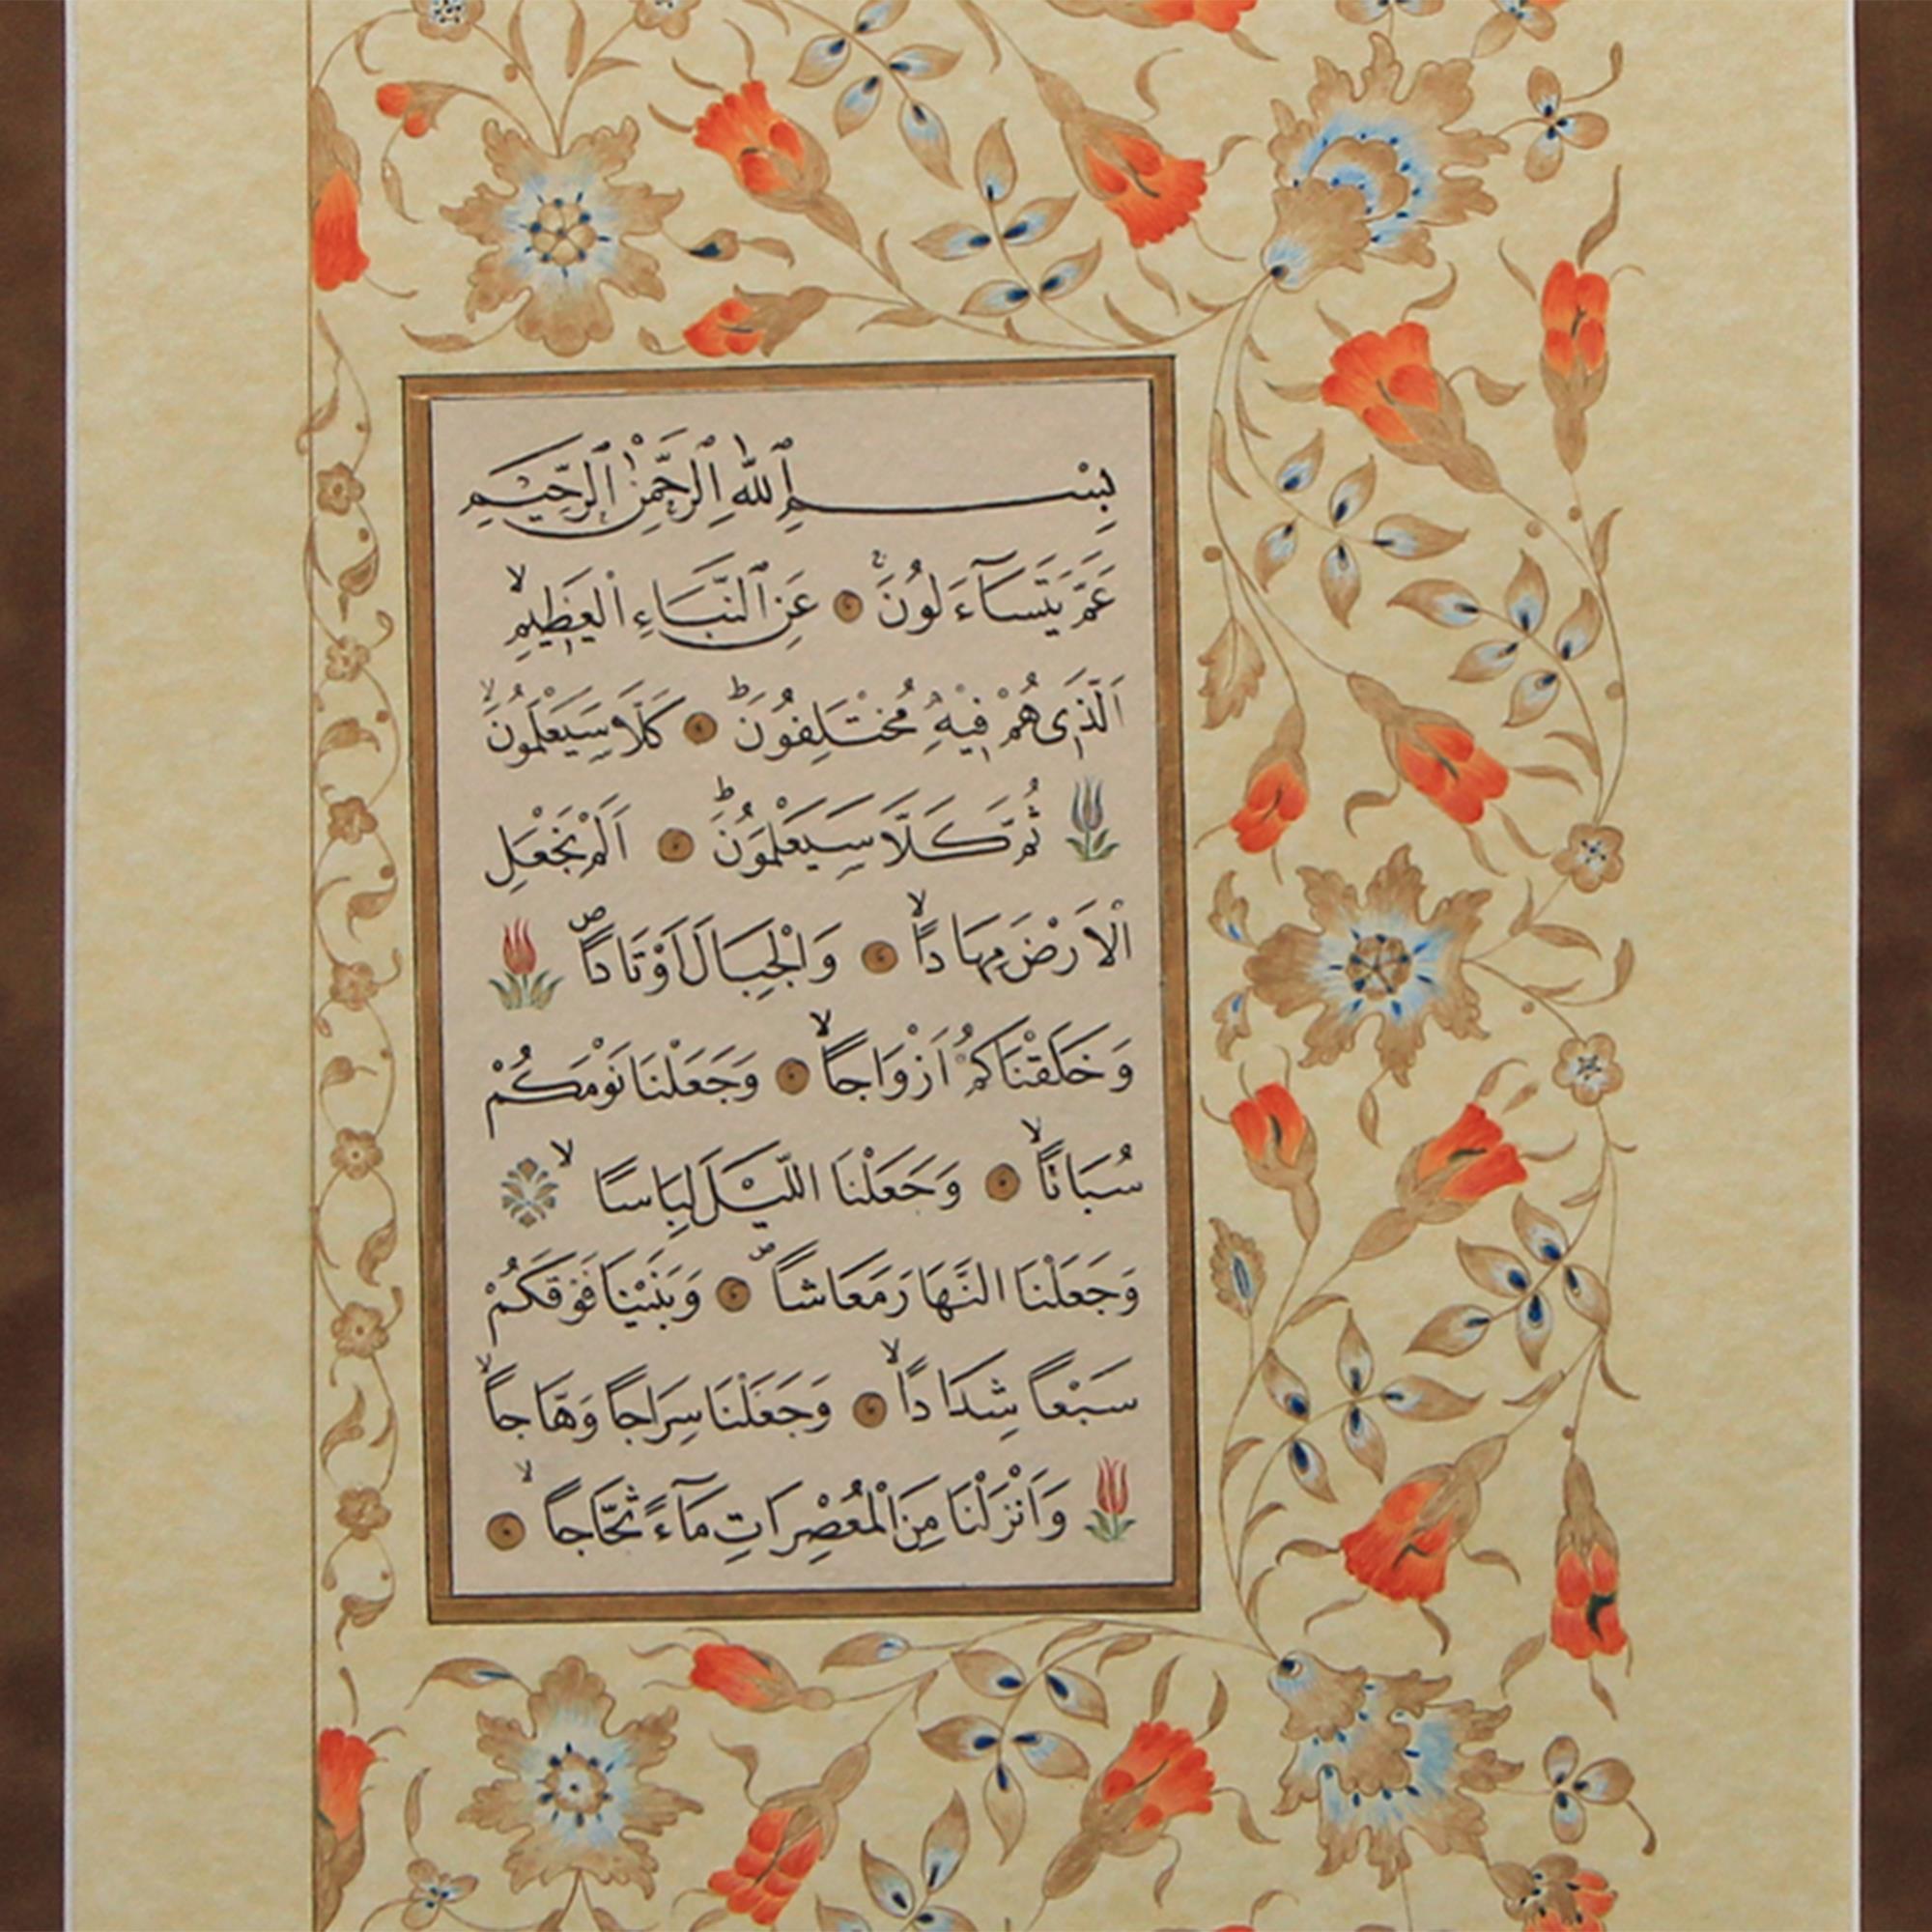 بِسْمِ ٱللّٰهِ ٱلرَّحْمٰنِ ٱلرَّحِيمِ
عَمَّ يَتَسَآءَلُونَۚ عَنِ ٱلنَّبَاِءِ الْعَظِيمِۙ
اَلَّذِى هُمْ فِيهِ مُخْتَلِفُونَۜ كَلَّا سَيَعْلَمُونَۙ
ثُمَّ كَلَّا سَيَعْلَمُونَ اَلَمْ نَجْعَلِ
الْاَرْضَ مِهَادًاۙ وَالْجِبَالَ اَوْتَادًاۖ
وَخَلَقْنَاكُمْ اَزْوَاجًاۙ وَجَعَلْنَا نَوْمَكُمْ
سُبَاتًاۙ وَجَعَلْنَا اللَّيْلَ لِبَاسًاۙ
وَجَعَلْنَا النَّهَارَ مَعَاشًاۖ وَبَنَيْنَا فَوْقَكُمْ
سَبْعًا شِدَادًاۙ وَجَعَلْنَا سِرَاجًا وَهَّاجًاۙ
وَاَنْزَلْنَا مِنَ الْمُعْصِرَاتِ مَآءً ثَجَّاجًاۙ